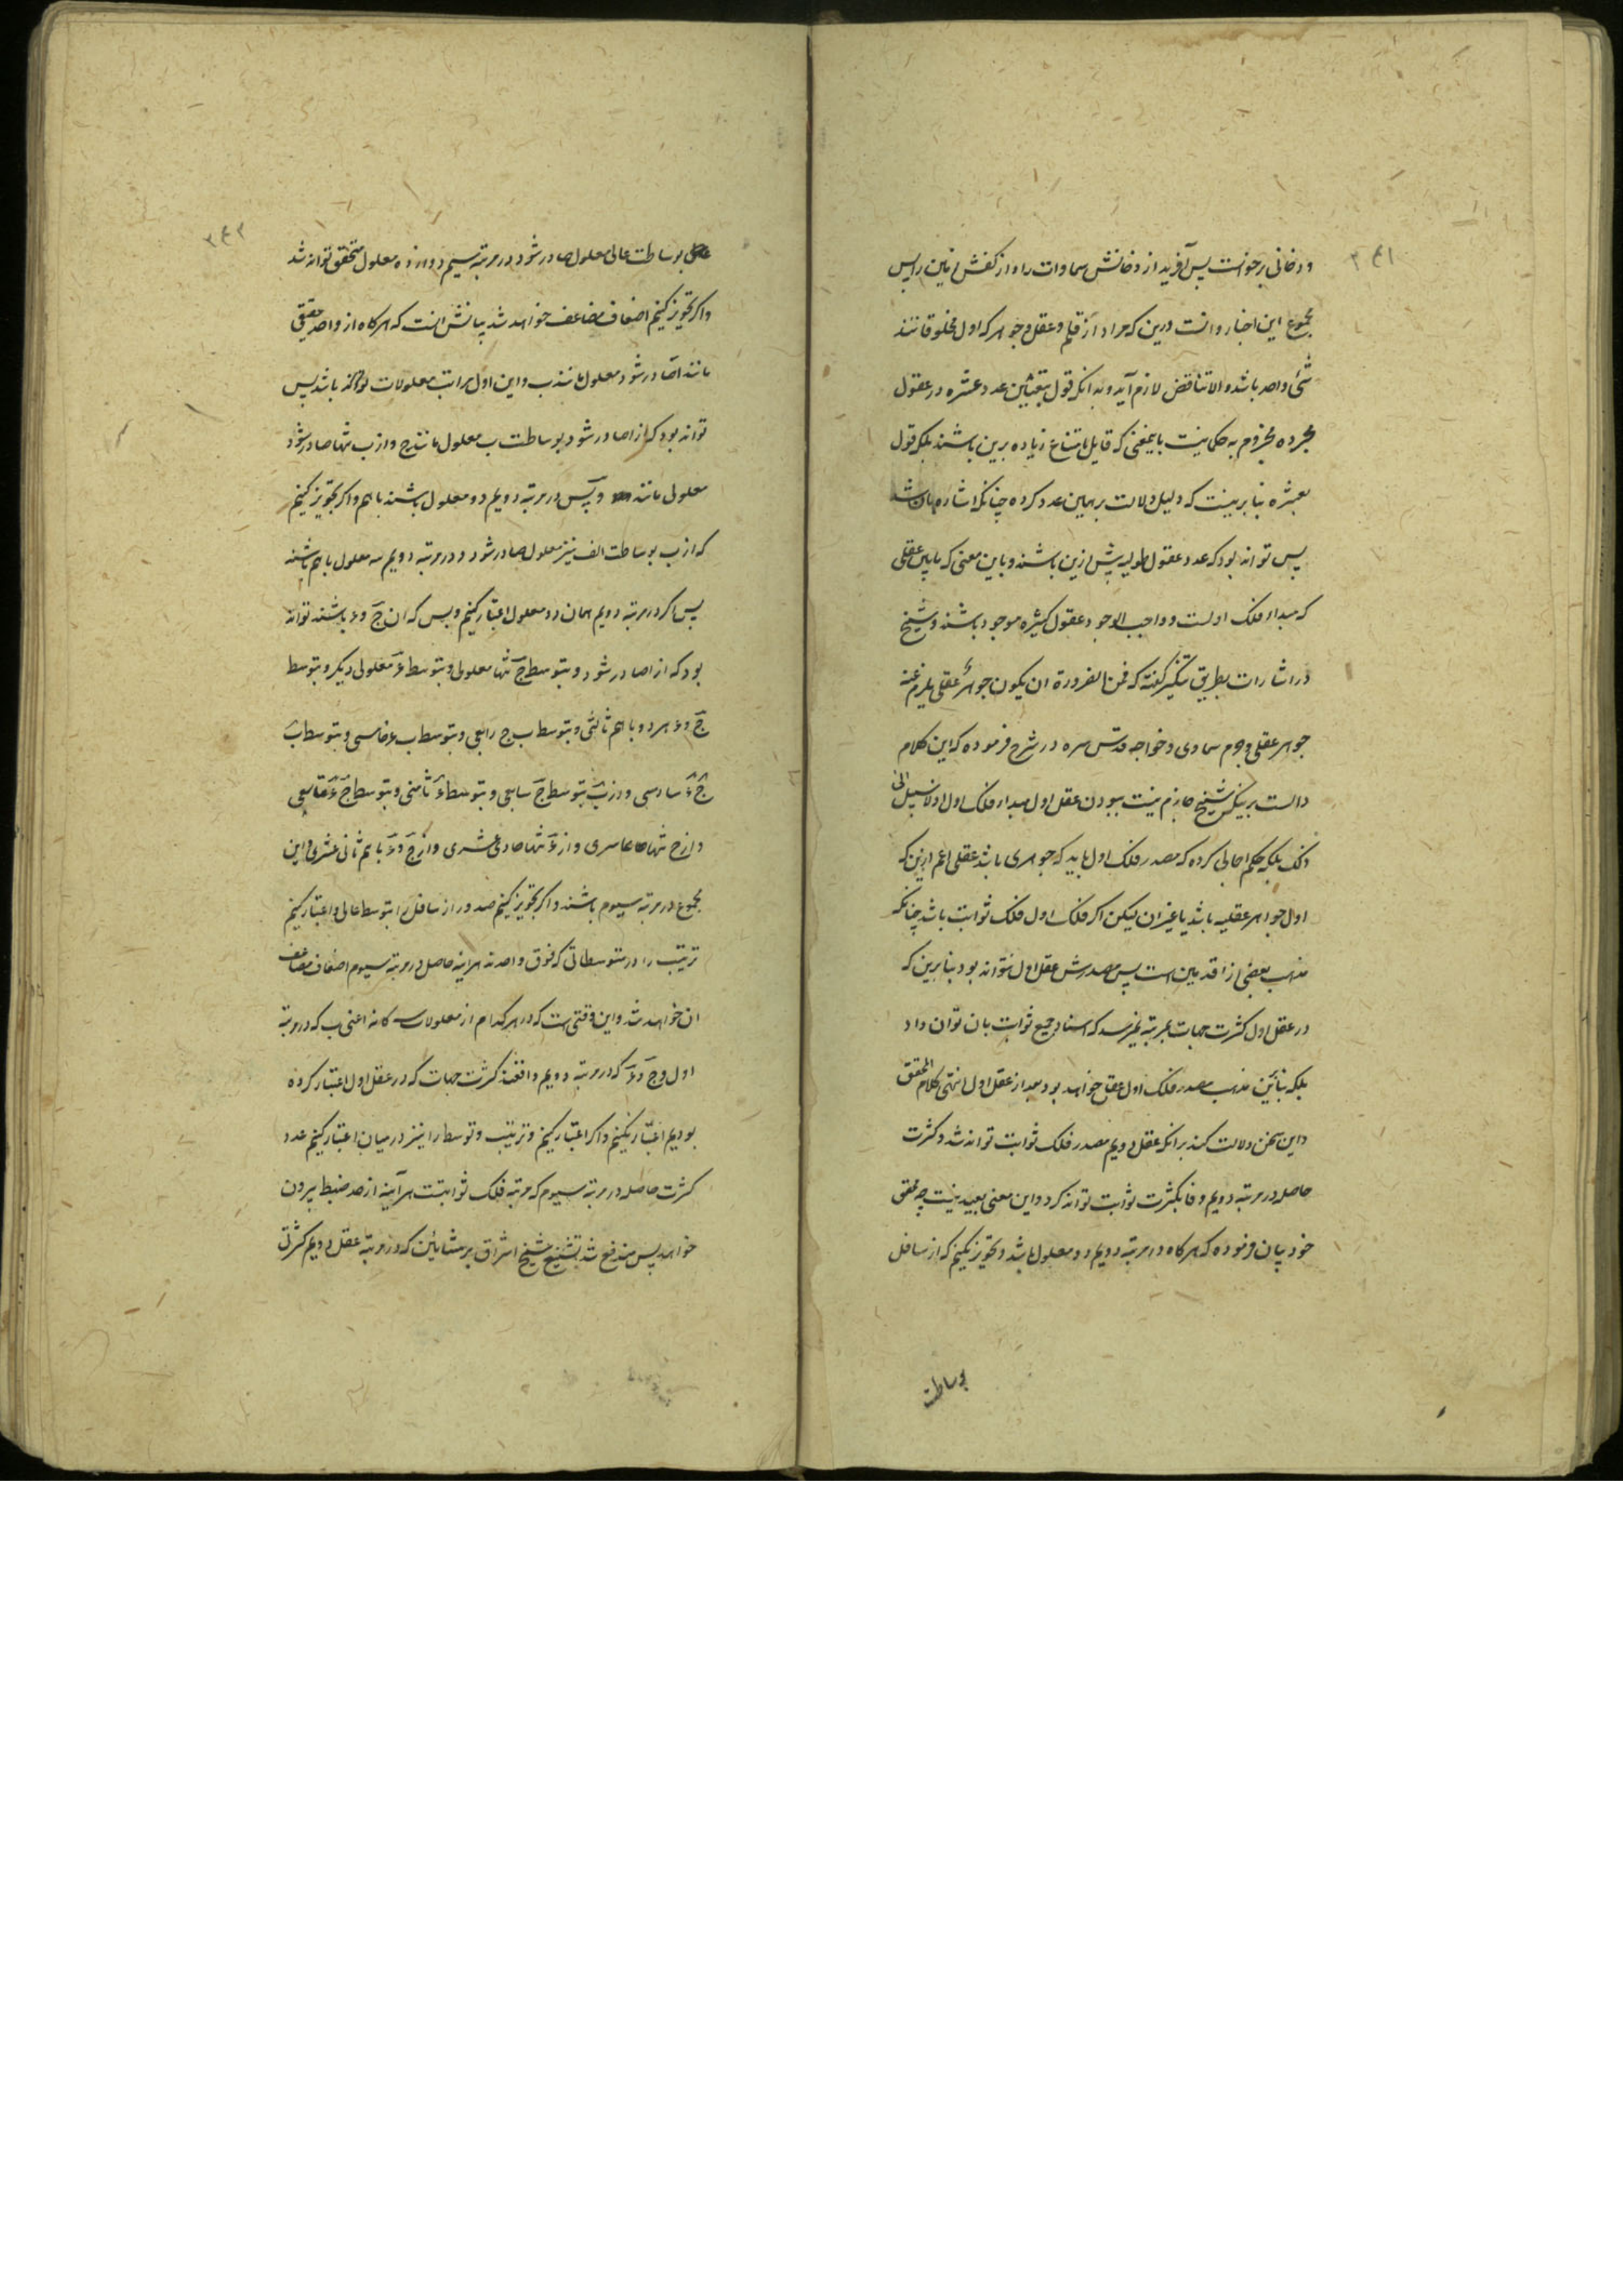 ۲۴۱
و دخانی برخواست پس آفرید از دخانش سماوات را و از کفش زمین را پس
مجموع این اخبار دالست درین که مراد از قلم و عقل و جوهر که اول مخلوقاتند
شئ واحد باشد و الا تناقض لازم آید و بدانکه قول بتعیین عدد عشره در عقول
مجرده مجزوم به حکما نیست باینمعنی که قایل بامتناع زیاده برین باشند بلکه قول
بعشره بنا برینست که دلیل دلالت بر همین عدد کرده چنانکه اشاره بان شد
پس تواند بود که عدد عقول طولیه بیش ازین باشند و باین معنی که مابین عقلی
که مبدا فلک اولست و واجب الوجود عقول کثیره موجود باشند و شیخ
در اشارات بطریق تنکیر گفته که فمن الضرورة ان یکون جوهر عقلی یلزم عنه
جوهر عقلی و جرم سماوی و خواجه قدس سره در شرح فرموده که این کلام
دالست برینکه شیخ جازم نیست ببودن عقل اول مبدا فلک اول و لا سبیل الی
ذلک بلکه حکم اجمالی کرده که مصدر فلک اول باید که جوهری باشد عقلی اعم ازین که
اول جواهر عقلیه باشد یا غیر ان لیکن اکر فلک اول فلک ثوابت باشد چنانکه
مذهب بعضی از اقدمین است پس مصدرش عقل اول نتواند بود بنا برین که
در عقل اول کثرت جهات بمرتبه نمیرسد که اسناد جمیع ثوابت بان توان داد
بلکه بنابرین مذهب مصدر فلک اول عقلی خواهد بود بعد از عقل اول انتهی کلام المحقق
و این سخن دلالت کند برانکه عقل دویم مصدر فلک ثوابت تواند شد و کثرت
حاصله در مرتبه دویم وفا بکثرت ثوابت تواند کرد و این معنی بعید نیست چه محقق
خود بیان فرموده که هرکاه در مرتبه دویم دو معلول باشد و تجویز نکنیم که از سافل
بوساطت
۲۴۲
بوساطت عالی معلول صادر شود در مرتبه سیم دوازده معلول متحقق تواند شد
و اکر تجویز کنیم اضعاف مضاعف خواهد شد بیانش انست که هرکاه از واحد حقیقی
مانند آ صادر شود معلول مانند ب و این اول مراتب معلولات باشد پس
تواند بود که از ا صادر شود بوساطت ب معلول مانند ج و از ب تنها صادر شود
معلول مانند و پس در مرتبه دویم دو معلول باشند باهم و اکر تجویز کنیم
که از ب بوساطت الف نیز معلول صادر شود و در مرتبه دویم سه معلول باهم باشند
پس اکر در مرتبه دویم همان دو معلول اعتبار کنیم و بس که ان ج و ء باشند تواند
بود که از ا صادر شود و بتوسط ج تنها معلولی و بتوسط ء معلولی دیکر و بتوسط
ج و ء هر دو باهم ثالثی و بتوسط ب ج رابعی و بتوسط ب ء خامسی و بتوسط ب
ج ء سادسی و از ب بتوسط ج سابعی و بتوسط ء ثامنی و بتوسط ج ء تاسعی
و از ج تنها عاشری و از ء تنها حادی عشری و از ج و ء باهم ثانی عشری و این
مجموع در مرتبه سیوم باشند و اکر تجویز کنیم صدور از سافل را بتوسط عالی و اعتبار کنیم
ترتیب را در متوسطاتی که فوق واحدند هراینه حاصل در مرتبه سیوم اضعاف مضاعف
ان خواهد شد و این وقتی است که در هر کدام از معلولات سه کانه اعنی ب که در مرتبه
اول و ج و ء که در مرتبه دویم واقعند کثرت جهات که در عقل اول اعتبار کرده
بودیم اعتبار نکنیم و اکر اعتبار کنیم و ترتیب و توسط را نیز در میان اعتبار کنیم عدد
کثرت حاصله در مرتبه سیوم که مرتبه فلک ثوابتست هرآینه از حد ضبط بیرون
خواهد پس مندفع شد تشنیع شیخ اشراق بر مشائین که در مرتبه عقل دویم کثرتی